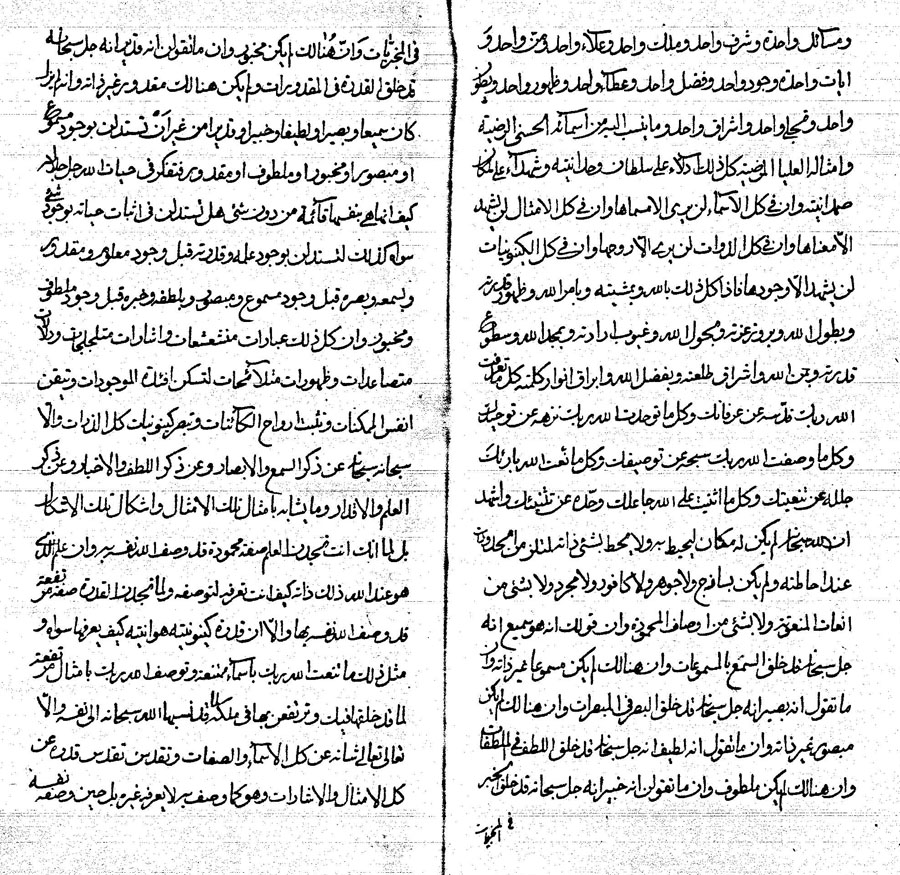 ومسائل واحدة وشرف واحد وملك واحد وعلاء واحد ومن واحد و
ايات واحدة وجود واحد وفضل واحد وعطاء واحد وظهور واحد وبطون
واحد وتجلي واحد واشراق واحد وما ينسب اليه من اسمائه الحسنى المرضية
وامثاله العليا المرضية كل ذلك دلاء على سلطان وحدانيته وشهداء على مكان
صمدانيته وان في كل الاسماء لن يرى الا سماها وان في كل الامثال لن يشهد
الا معناها وان في كل الذوات لن يرى الا روحها وان في كل الكينونيات
لن يشهد الا وجودها فاذا كل ذلك بالله وبمشيته وبامر الله وظهور قدرته
وبطول الله وبروز عزته وبحول الله وغيوب ارادته وبمجد الله وسطوع
قدرته وبمن الله واشراق طلعته وبفضل الله وابراق انوار كلمته كل ما تعرفت
الله ربك قدسه عن عرفانك وكل ما توحدت الله ربك نزهه عن توحيدك
وكل ما وصفت الله ربك سبحه عن توصيفك وكل ما نعت الله بارئك
جلله عن تنعيتك وكل ما اثنيت على الله جاعلك وحده عن تثنيتك واشهد
ان الله سبحانه لم يكن له مكان ليحيط به ولا محيط بشئ ذاته لمنزلز من المجد وان
عند احاطته ولم يكن بساذج ولا جوهر ولا كافور ولا مجرد ولا بشئ من
انعات المنعوتة ولا بشئ من اوصاف المحمودة وان قولك انه هو سميع انه
جل سبحانه قد خلق السمع بالمسموعات وان هنالك لم يكن مسموعا غير ذاته وان
ما تقول انه بصير انه جل سبحانه قد خلق البصر في المبصرات وان هنالك لم يكن
مبصور غير ذاته وان ما تقول انه لطيف انه جل سبحانه قد خلق اللطف في الملطفات
وان هنالك لم يكن ملطوف وان ما تقولن انه خبير انه جل سبحانه قد خلق الخبر
في المخبرات
في المخبرات وان هنالك لم يكن مخبور وان ما تقولن انه قدير انه جل سبحانه
قد خلق القدرة في المقدورات ولم يكن هنالك مقدور غير ذاته وانه لم يزل
كان سميعا وبصيرا ولطيفا وخبيرا وقديرا من غير ان تستدلن بوجود مسموع
او مبصور او مخبور او ملطوف او مقدور فتفكر في حيات الله جل جلاله
كيف انها هي بنفسها قائمة من دون شئ هل تستدلن في اثبات حياته بوجود شئ
سواه كذلك لتستدلن بوجود علمه وقدرته قبل وجود معلوم ومقدور
وبسمعه وبصره قبل وجود مسموع ومبصور وبلطفه وخبره قبل وجود ملطوف
ومخبور وان كل ذلك عبارات متشعشعات واشارات متلجلجات ودلالات
متصاعدات وظهورات متلائحات لتسكن افئدة الموجودات وتيقن
انفس الممكنات وتثبت ارواح الكائنات وتبصر كينونيات كل الذرات والا
سبحانه سبحانه عن ذكر السمع والابصار وعن ذكر اللطف والاخبار وعن ذكر
العلم والاقدار وما يشابه بامثال تلك الامثال واشكال تلك الاشكال
بل لما انك انت تجدن العلم صفة محمودة قد وصف الله نفسه به وان علم الذي
هو عند الله ذلك ذاته كيف انت تعرفه لتوصفه ولما تجدن القدرة صفة مرتفعة
قد وصف الله نفسه بها والا ان قدرة كينونيته هو انيته كيف يعرفها سواه و
مثل ذلك ما تنعت الله ربك باسماء ممتنعة وتوصف الله ربك بامثال مرتفعة
لما قد خلقها فيك وترتفعن بها في ملكه قد نسبها الله سبحانه الى نفسه والا
تعالى تعالى شانه عن كل الاسماء والصفات وتقدس تقدس قدره عن
كل الامثال والاشارات وهو كما وصف به لا يعرفه غيره بل حين وصفه نفسه